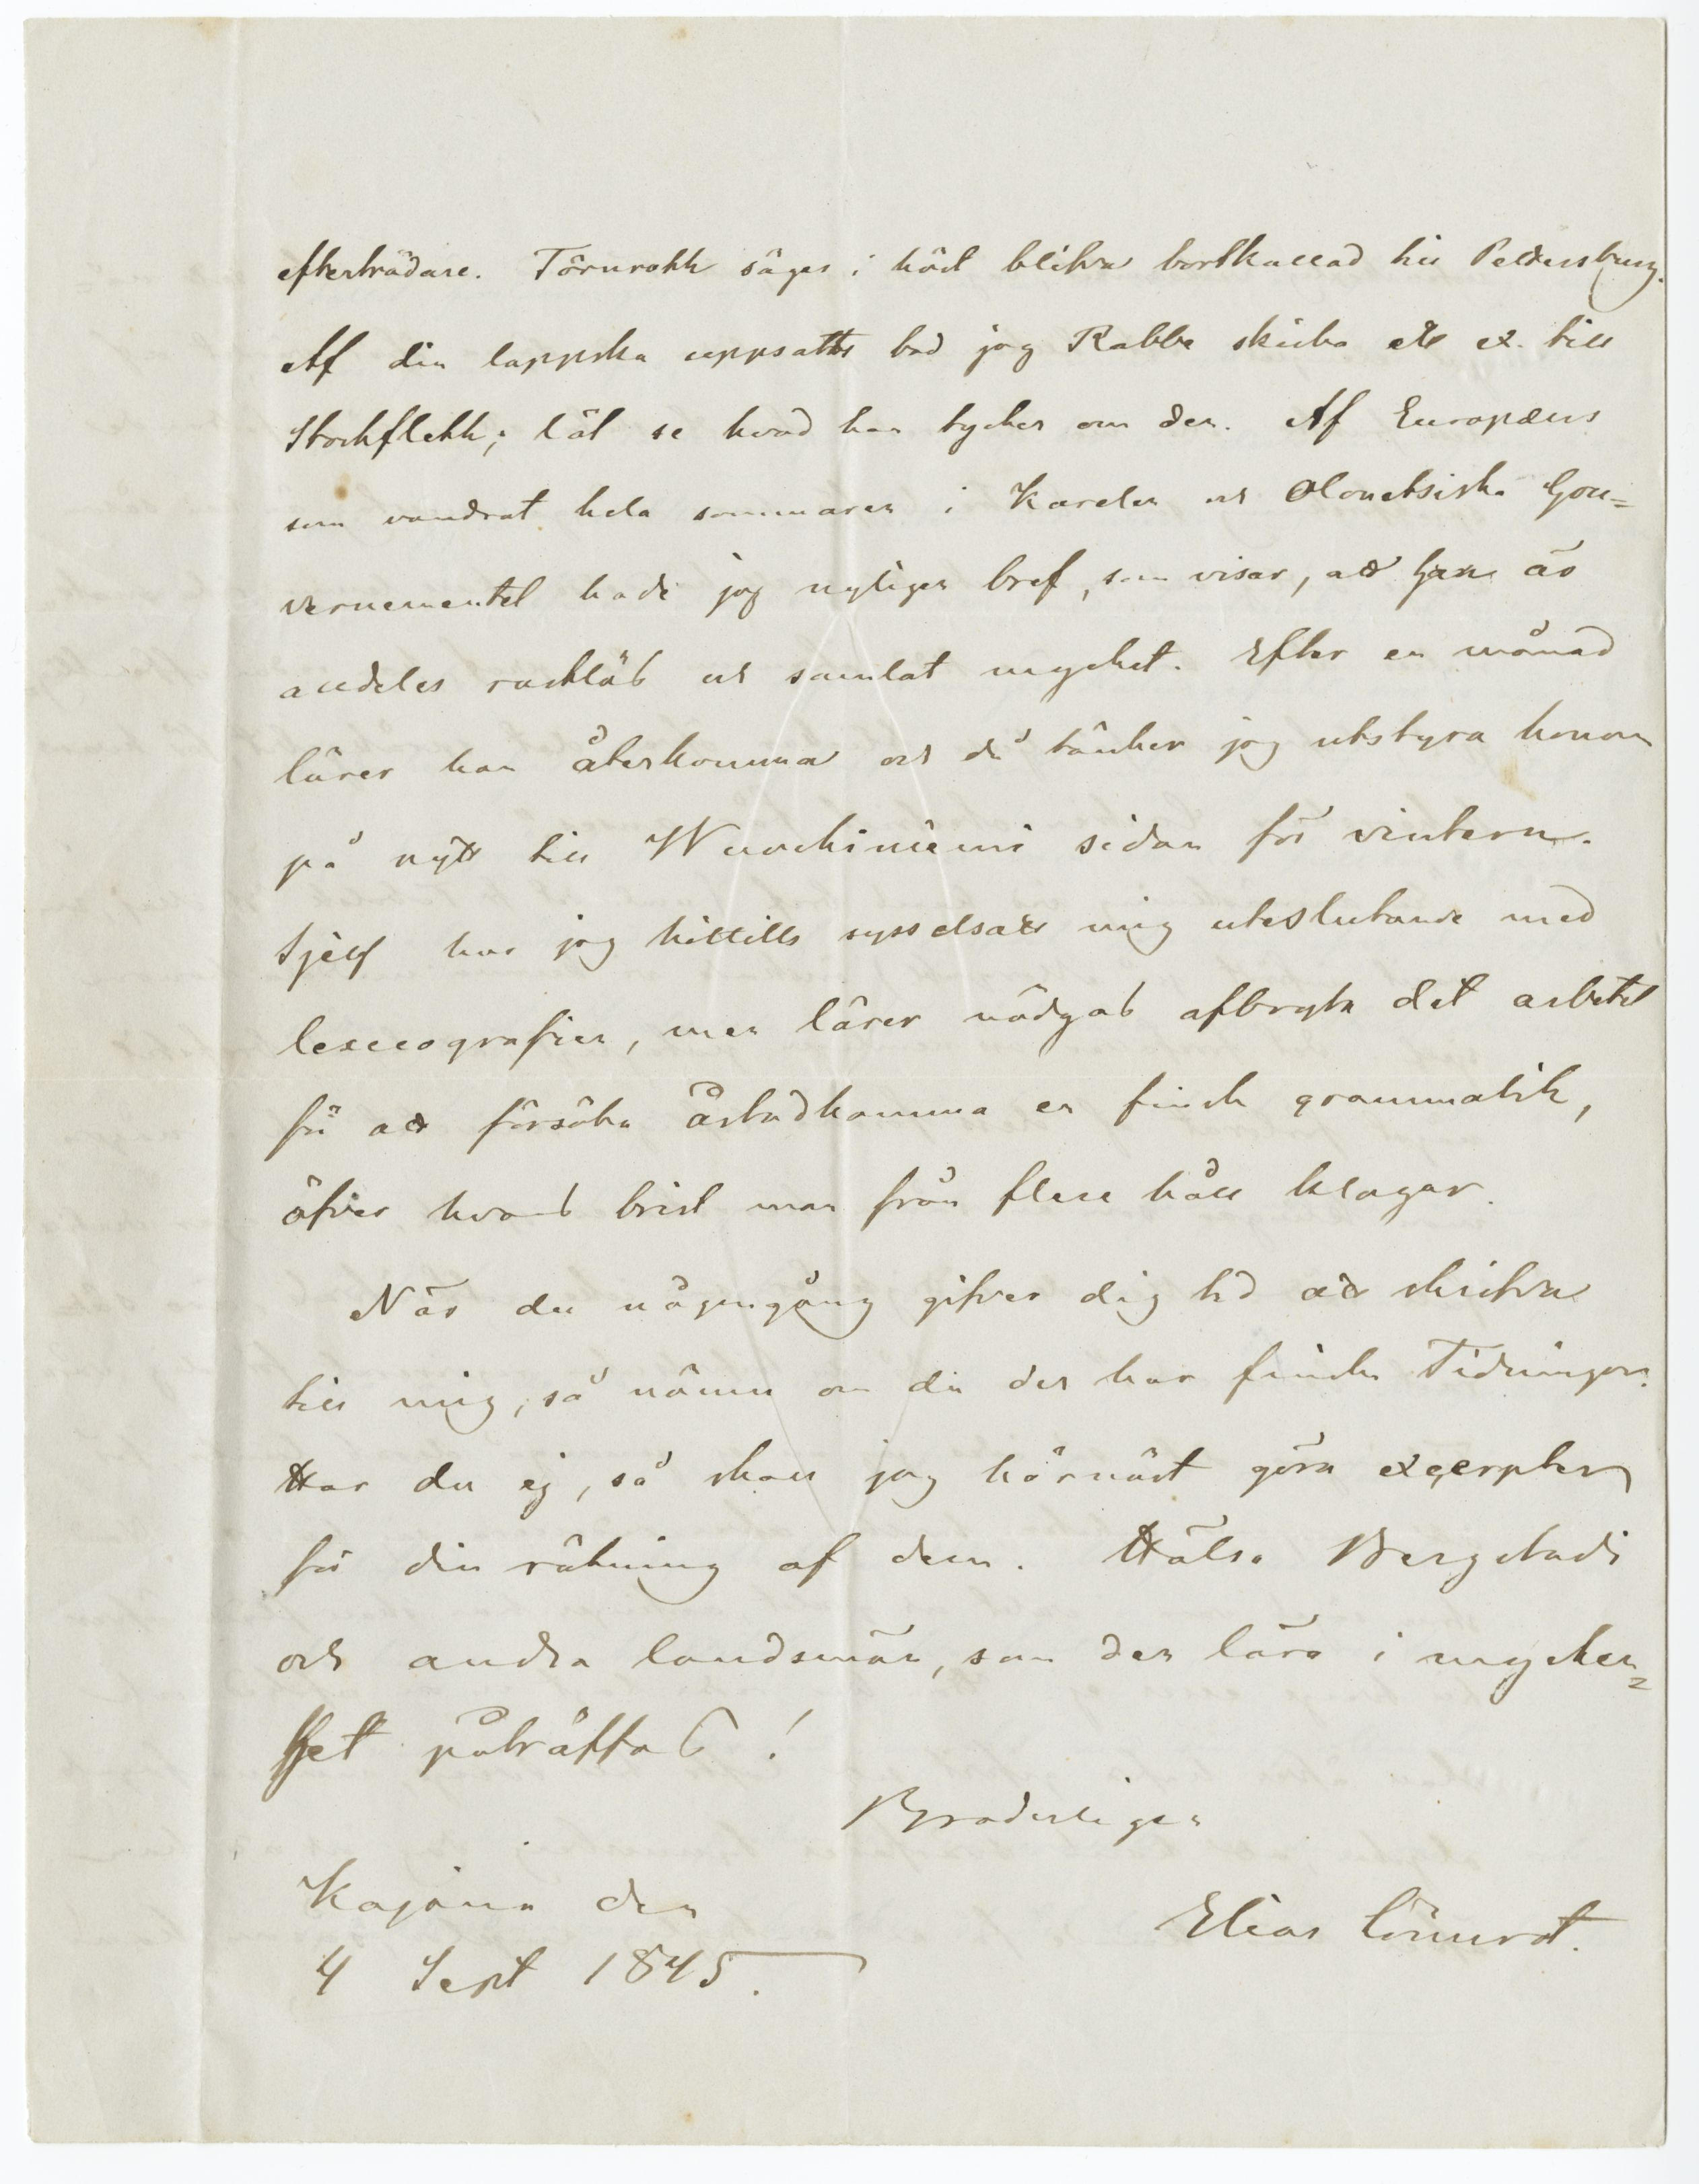 efterträdare. Törnroth säges i höst blifva bortkallad till Petersburg.
Af din lappska uppsatts bad jag Rabbe skicka ett ex. till
Stockfleth; låt se hvad han tycker om den. Af Europæus
som vandrat hela sommaren i Karelen och Olonetsiska Gou=
vernementet hade jag nyligen bref, som visar, att han är
alldeles rastlös och samlat mycket. Efter en månad
lärer han återkomma och då tänker jag utstyra honom
på nytt till Wuokkiniemi sidan för vintern.
Sjelf har jag hittills sysselsatt mig uteslutande med
lexicografien, men lärer nödgas afbryta det arbetet
för att försöka åstadkomma en finsk grammatik,
öfver hvars brist man från flere håll klagar.
När du någongång gifver dig tid att skrifva
till mig, så nämn om du der har finska Tidningar.
Har du ej, så skall jag härnäst göra excerpter
för din räkning af dem. Hälsa Bergstadi
och andra landsmän, som der lära i mycken=
het påträffas!
Broderligen
Kajana den
Elias Lönnrot.
4 Sept 1845.